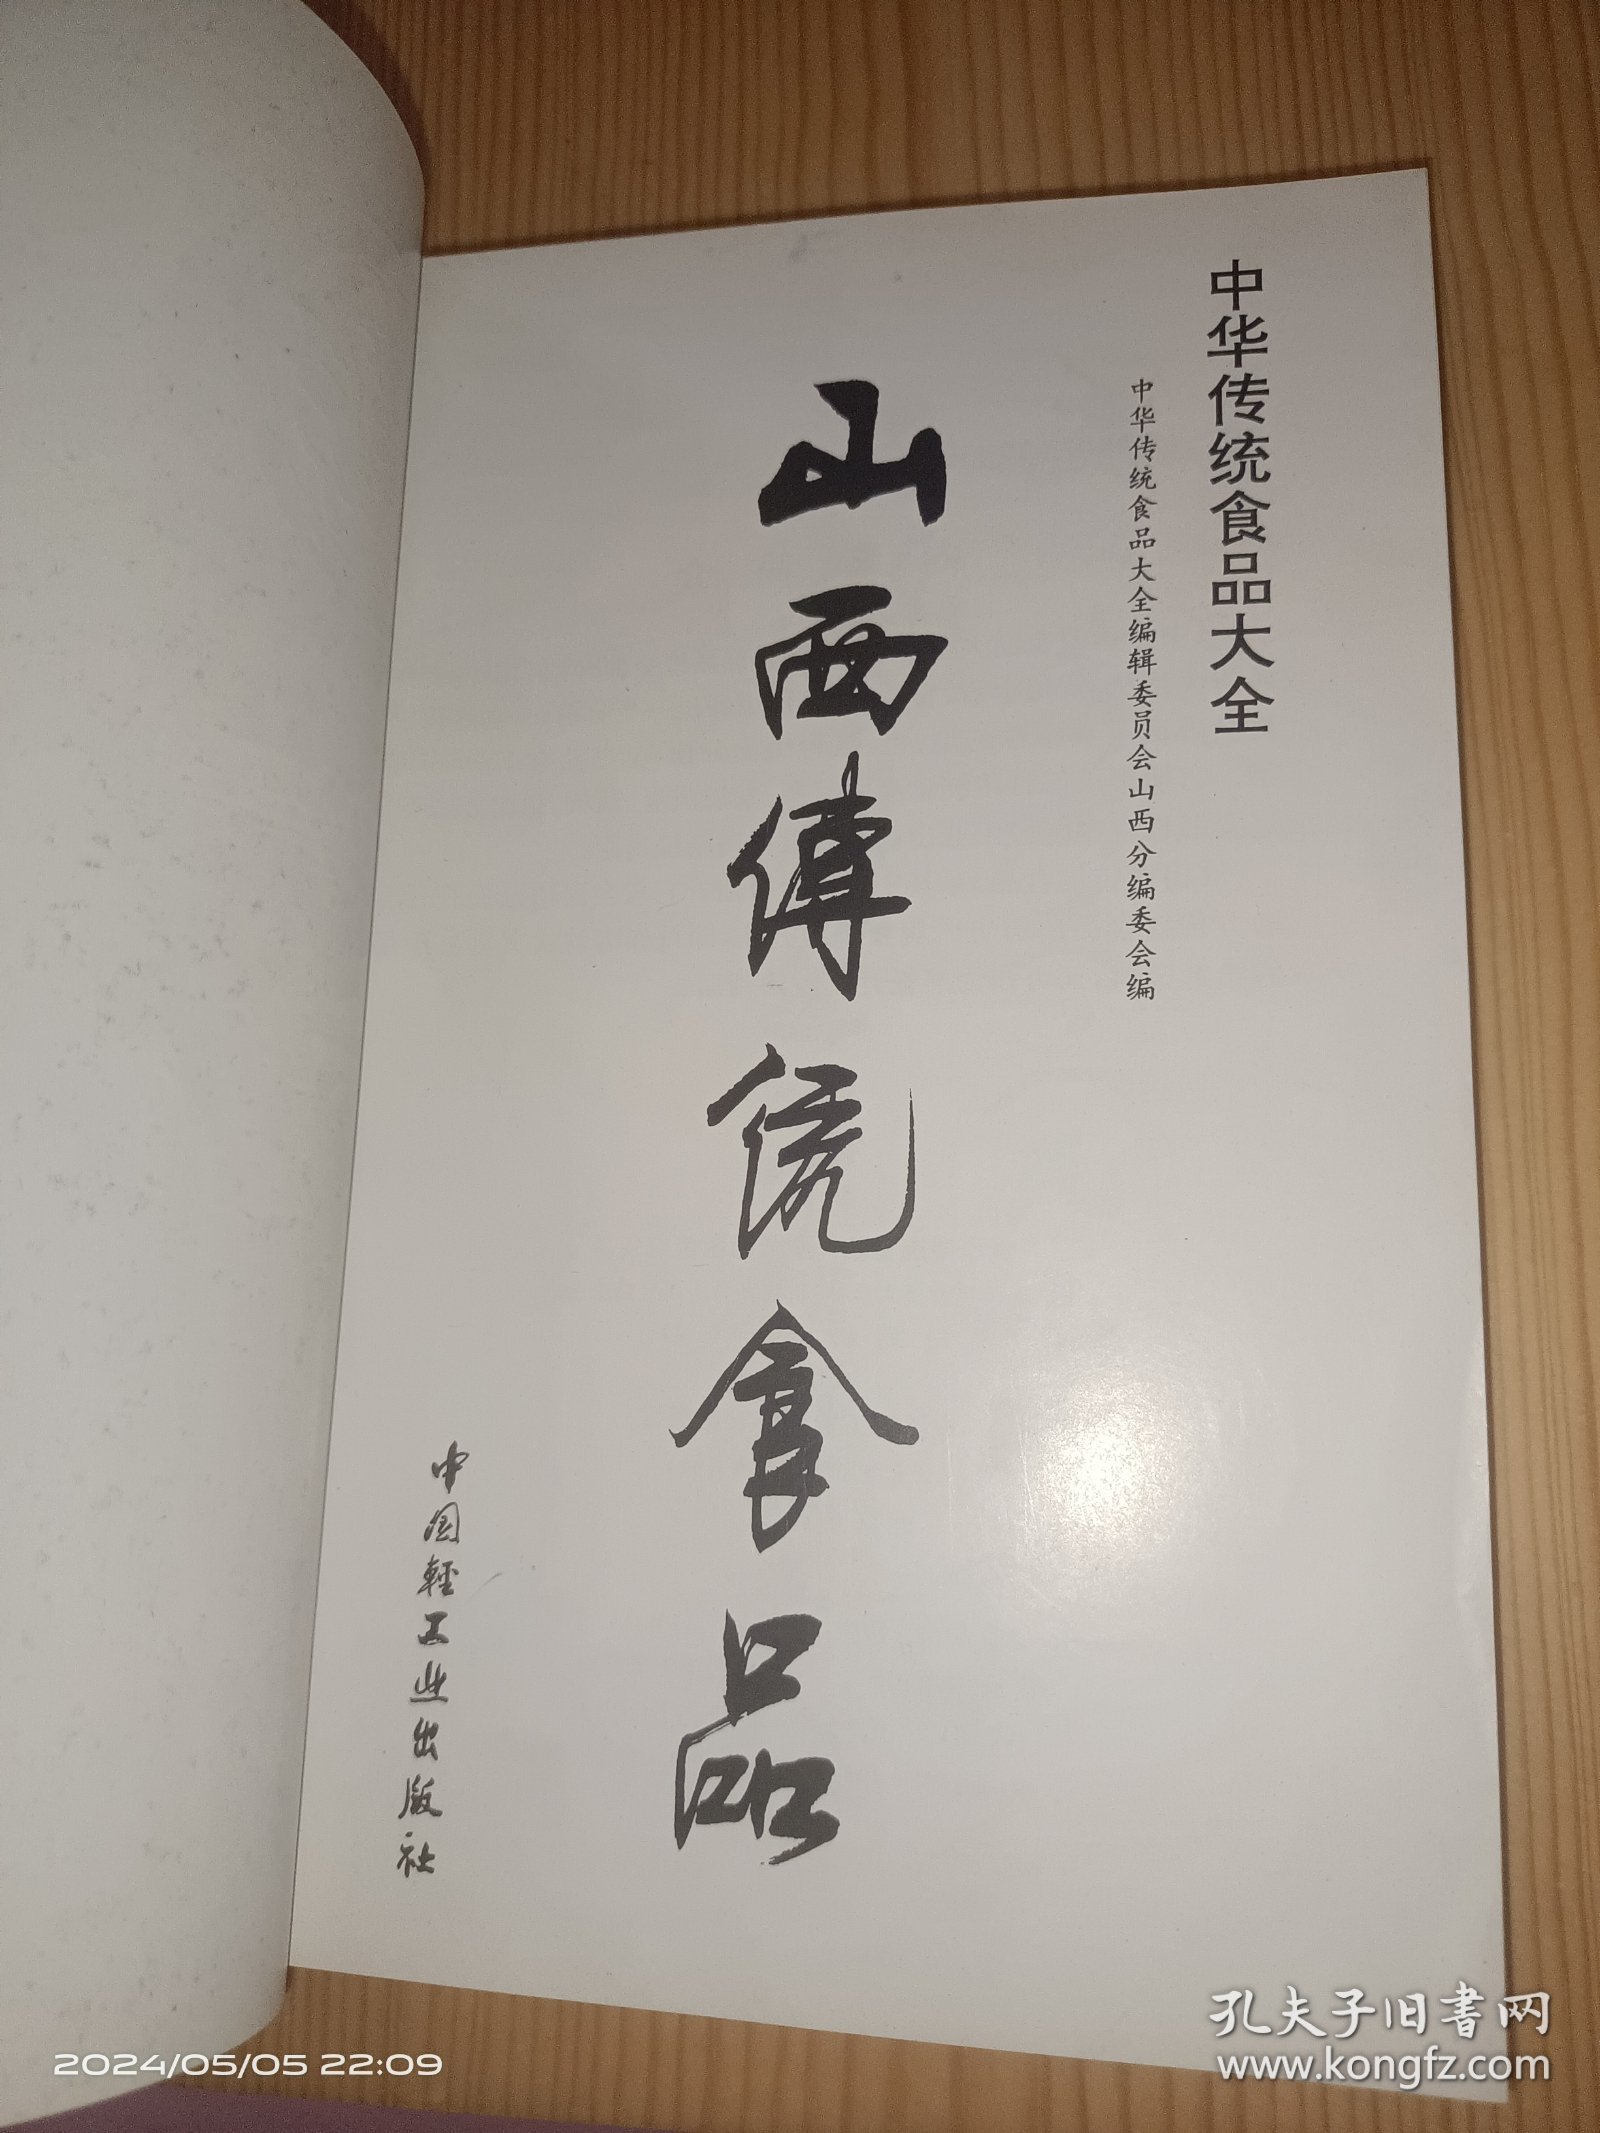 中华传统食品大全
中华传统食品大全编辑委员会山西分编委会编
山西傳统食品
中国輕工业出版社
孔夫子旧書网
www.kongfz.com
2024/05/05 22:09